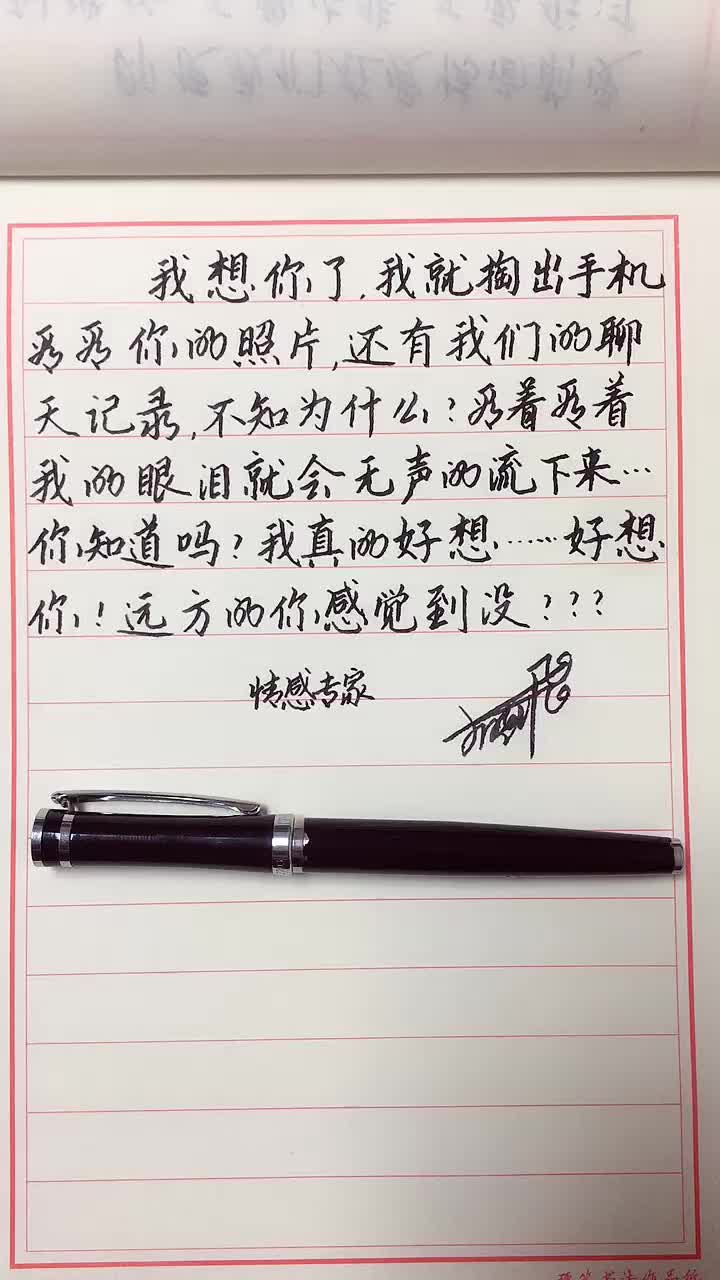 我想你了,我就掏出手机
看看你的照片,还有我们的聊
天记录,不知为什么?看着看着
我的眼泪就会无声的流下来…
你知道吗?我真的好想……好想
你!远方的你感觉到没???
情感专家